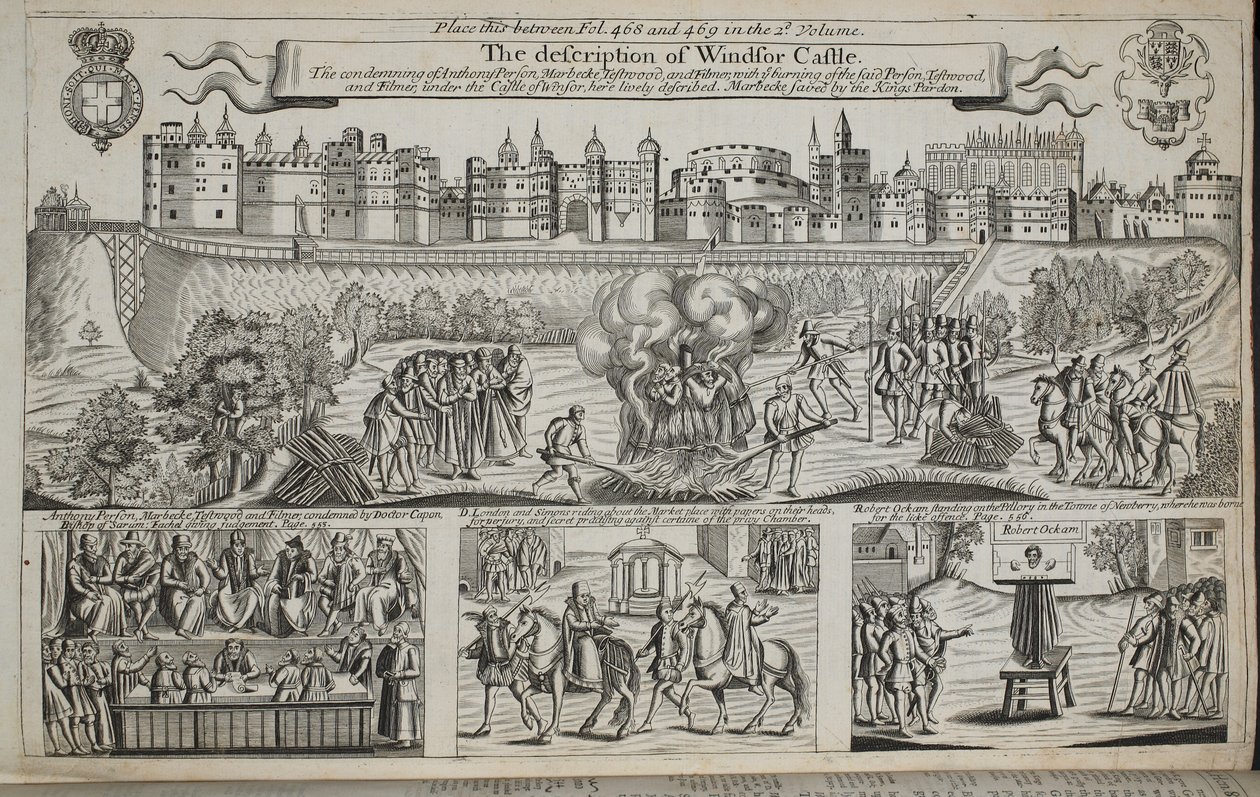 Place this between Fol. 468 and 469 in the 2d. Volume.
The description of Windsor Castle.
The condemning of Anthony Person, Marbecke, Testwood, and Filmer, with ye burning of the said Person, Testwood,
and Filmer, under the Castle of Winsor, here lively described. Marbecke saved by the Kings Pardon.
HONI·SOIT·QUI·MAL·Y·PENSE
Anthony Person, Marbecke, Testwood and Filmer, condemned by Doctor Capon,
Bishop of Sarum: Fachel giving iudgement. Page. 553.
D. London and Simons riding about the Market place with papers on their heads,
for perjury, and secret practising against certaine of the privy Chamber.
Robert Ockam standing on the Pillory in the Towne of Newberry, where he was borne
for the like offence. Page. 556.
Robert Ockam